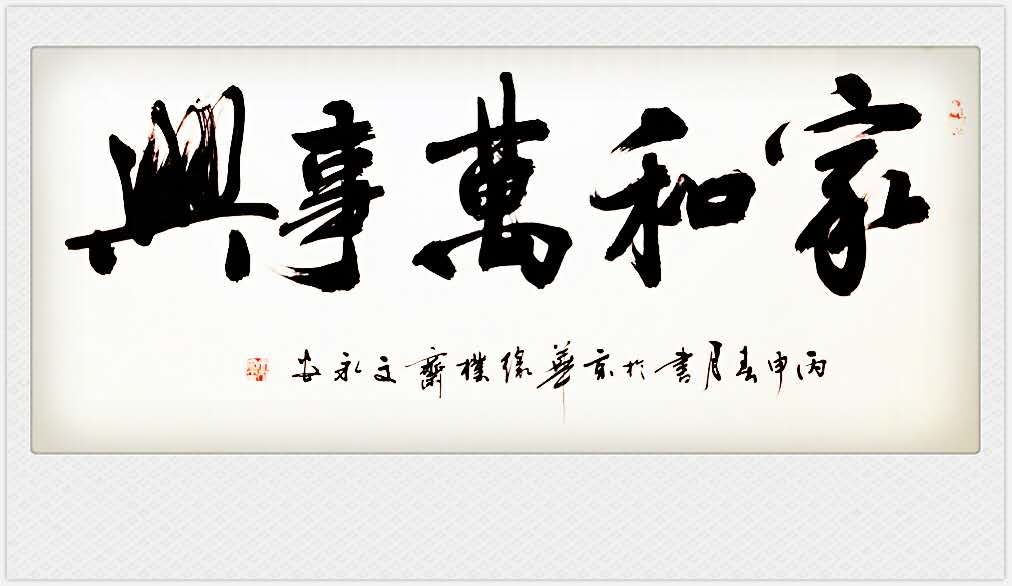 家和萬事興
丙申春月書於京華緣樸齋文永安